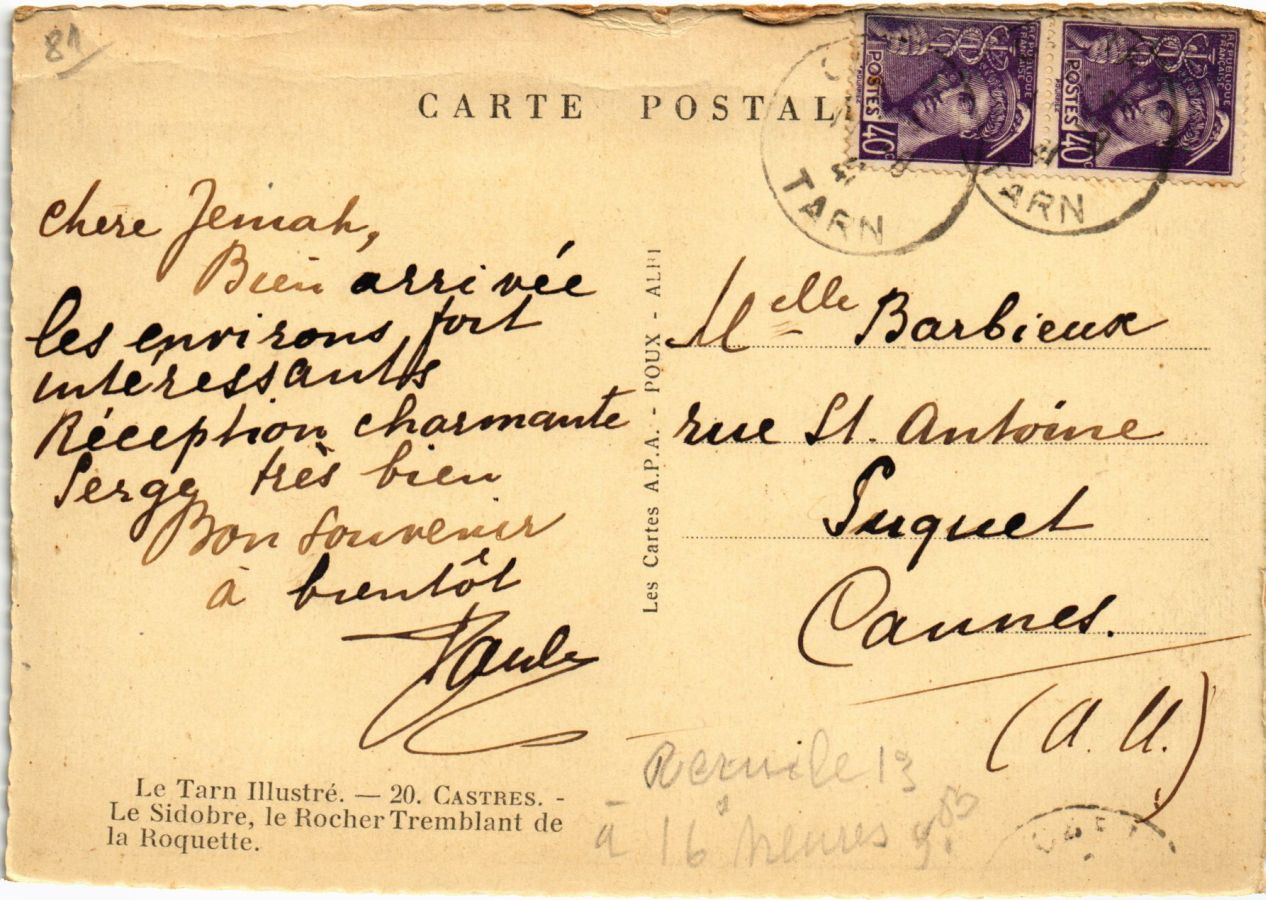 81
CARTE POSTAL
RÉPUBLIQUE FRANÇAISE
POSTES 40c
RÉPUBLIQUE FRANÇAISE
POSTES 40c
TARN
TARN
chere Jemah,
Bien arrivée
les environs fort
intéressants
Réception charmante
Serge très bien
Bon souvenir
à bientôt
Paule
Le Tarn Illustré. — 20. CASTRES. -
Le Sidobre, le Rocher Tremblant de
la Roquette.
Les Cartes A.P.A. - POUX - ALBI
Melle Barbieux
rue St. Antoine
Suquet
Cannes.
(A. M.)
13
à 16 heures